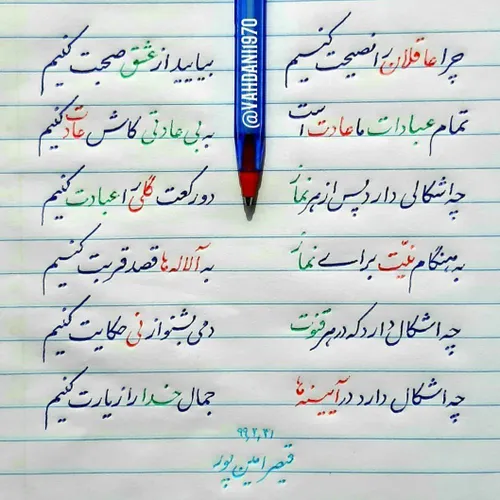 چرا عاقلان را نصیحت کنیم
بیایید از عشق صحبت کنیم
تمام عبادات ما عادت است
به بی عادتی کاش عادت کنیم
چه اشکالی دارد پس از هر نماز
دو رکعت گلی را عبادت کنیم
به هنگام نیّت برای نماز
به آلاله ها قصد قربت کنیم
چه اشکال دارد که در هر قنوت
دمی بشنو از نی حکایت کنیم
چه اشکال دارد در آیینه ها
جمال خدا را زیارت کنیم
۹۹,۲,۳۱
قیصر امین پور
@VAHDANI1970